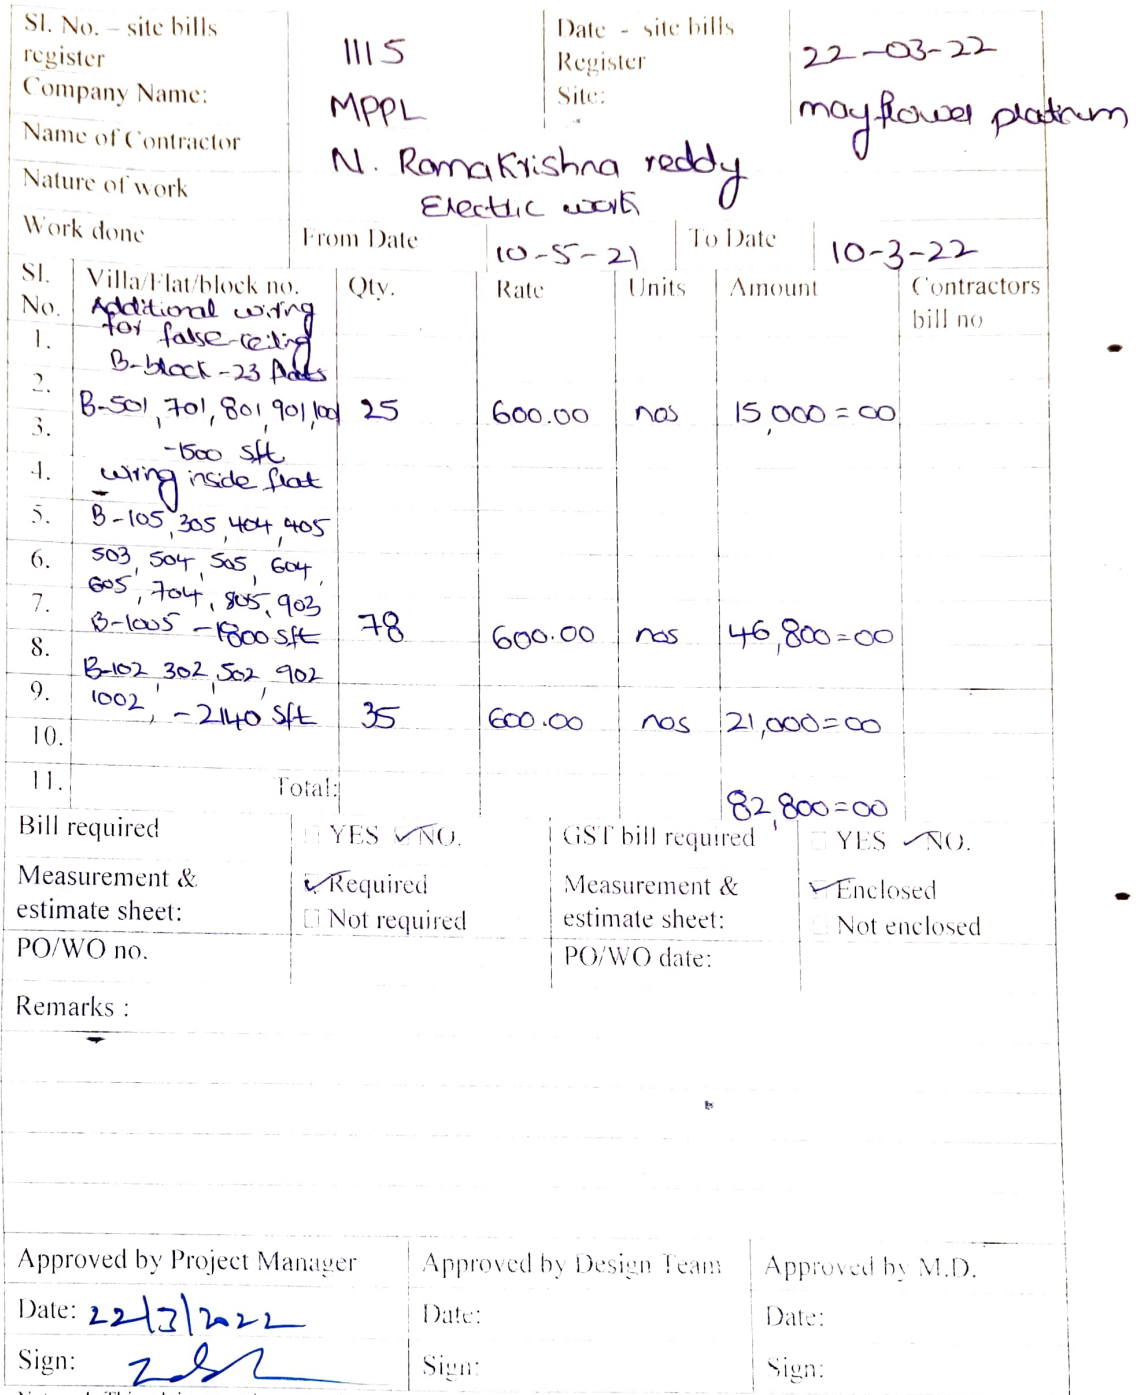 Sl. No. – site bills register 1115 Date - site bills Register 22-03-22
Company Name: MPPL Site: mayflower platinum
Name of Contractor N. Ramakrishna reddy
Nature of work Electric work
Work done From Date 10-5-21 To Date 10-3-22
Sl. No. Villa/Flat/block no. Qty. Rate Units Amount Contractors bill no
Additional wiring
1. for false-ceiling
B-block-23 flats
2.
B-501, 701, 801, 901, 1001 25 600.00 nos 15,000=00
3.
-1500 sft
4. wiring inside flat
5. B-105, 305, 404, 405
6. 503, 504, 505, 604,
605, 704, 805, 903
7.
B-1005 -1800 sft 78 600.00 nos 46,800=00
8.
B-102, 302, 502, 902
9. 1002, -2140 sft 35 600.00 nos 21,000=00
10.
11. Total: 82,800=00
Bill required YES ✓NO. GST bill required YES ✓NO.
Measurement & estimate sheet: ✓Required Measurement & estimate sheet: ✓Enclosed
Not required Not enclosed
PO/WO no. PO/WO date:
Remarks :
Approved by Project Manager Approved by Design Team Approved by M.D.
Date: 22/3/2022 Date: Date:
Sign: Sign: Sign: